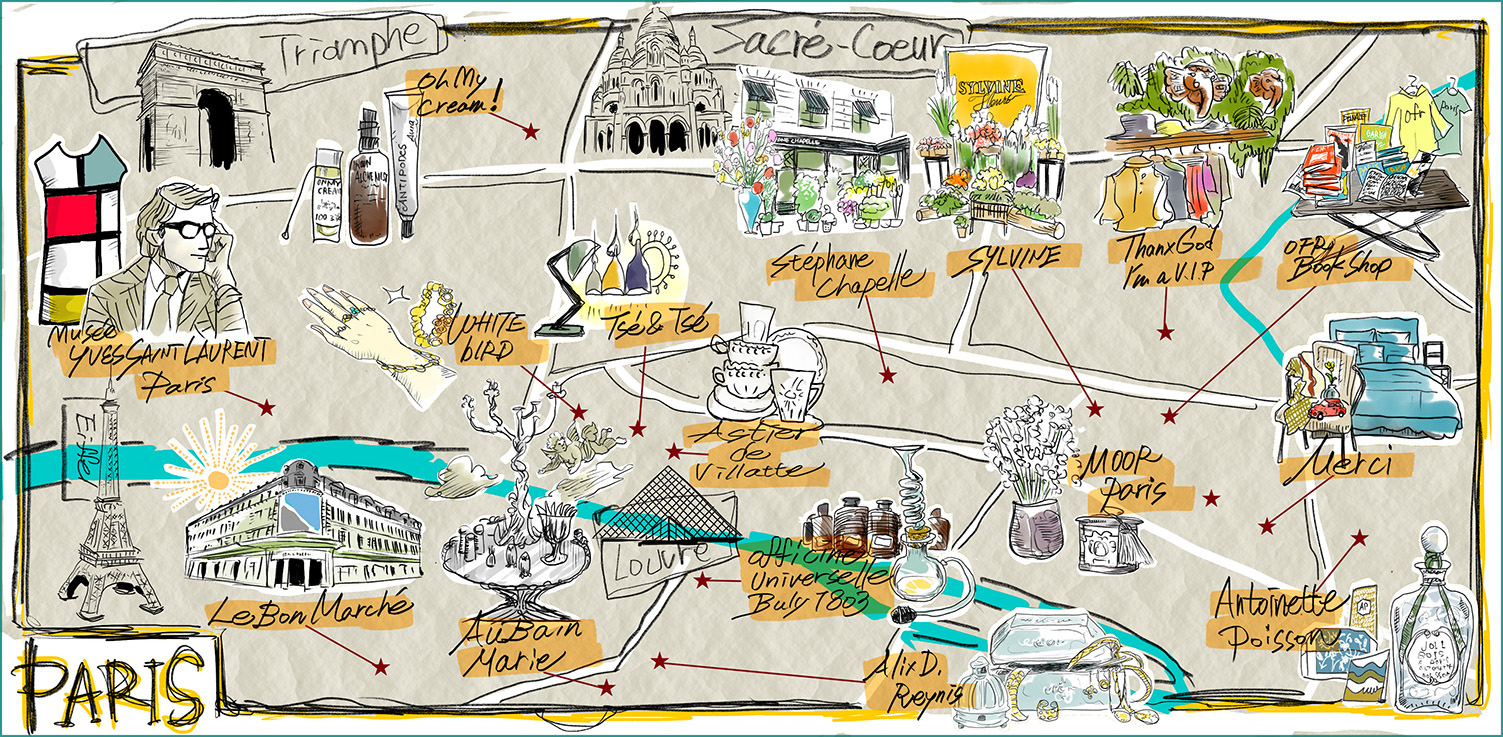 Triomphe
Sacré-Coeur
Oh My
cream!
ANTIPODES
SYLVINE
fleurs
CHAPELLE
Ofr
Paris
Stéphane
Chapelle
SYLVINE
ThanxGod
I'm a V.I.P
OFR.
Book Shop
Musée
YVES SAINT LAURENT
Paris
WHITE
bIRD
Tsé & Tsé
Astier
de
Villatte
MOOR
Paris
Merci
Eiffel
Louvre
Officine
Universelle
Buly 1803
Le Bon Marché
Au Bain
Marie
Alix D.
Reynis
Antoinette
Poisson
AP
JOLI
BOIS
PARIS